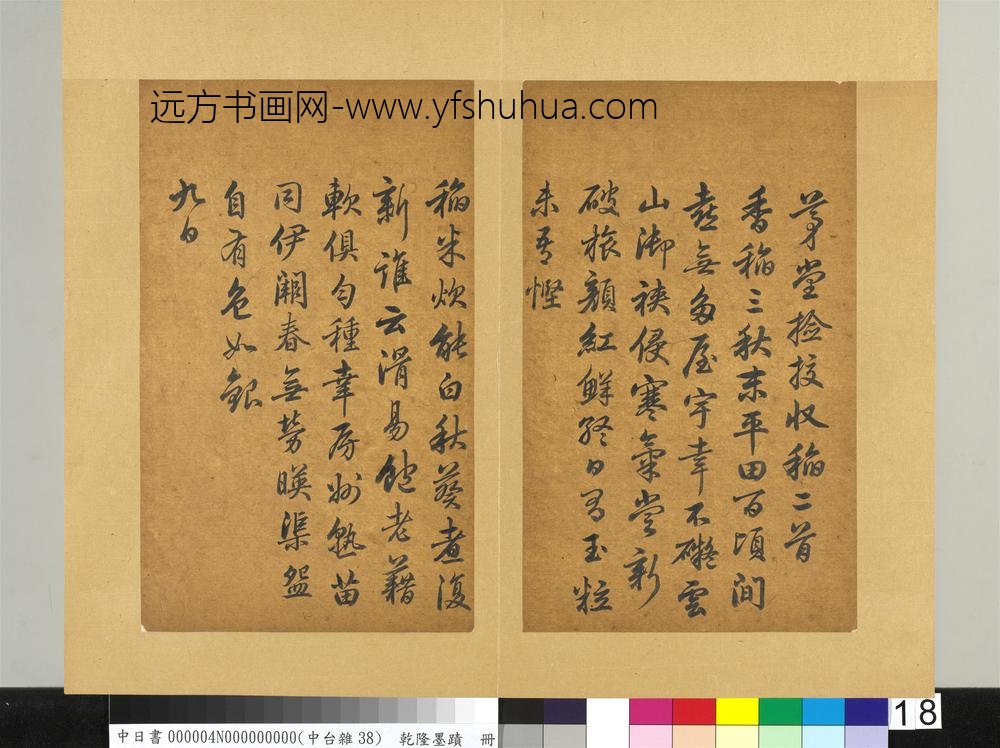 远方书画网-www.yfshuhua.com
茅堂撿挍收稻二首
香稻三秋末平田百頃间
喜無多屋宇幸不礙雲
山御裌侵寒氣嘗新
破旅顏紅鮮終日有玉粒
未吾慳
稻米炊能白秋葵煮復
新誰云滑易飽老藉
軟俱勻種幸房州熟苗
同伊闕春無勞暎渠盌
自有色如銀
九日
18
中日書 000004N000000000(中台雜 38) 乾隆墨蹟 冊